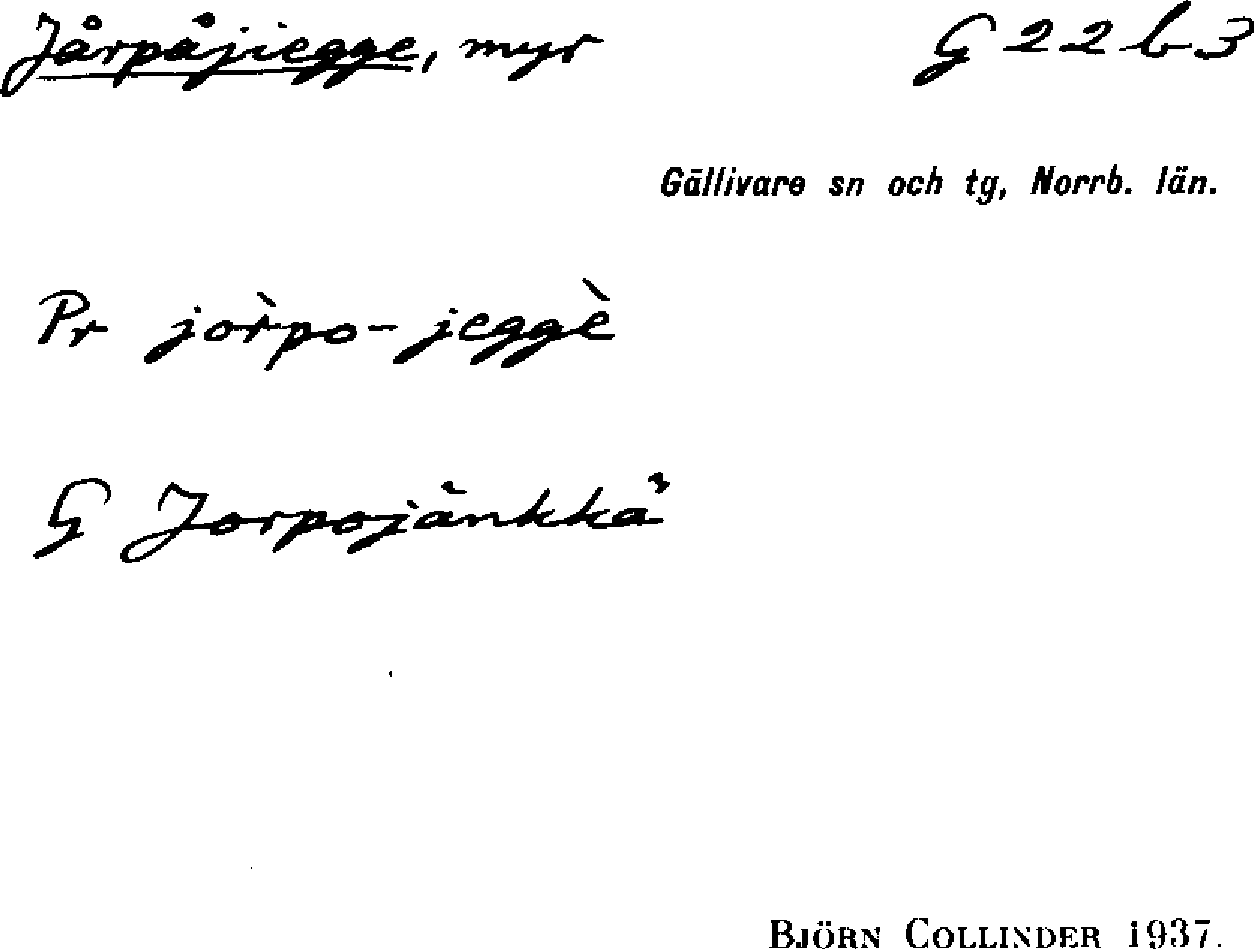 Jårpåjiegge, myr G 22 b 3
Gällivare sn och tg, Norrb. län.
Pr jor̀po-jeggè
G Jorpojänkkä
BJÖRN COLLINDER 1937.